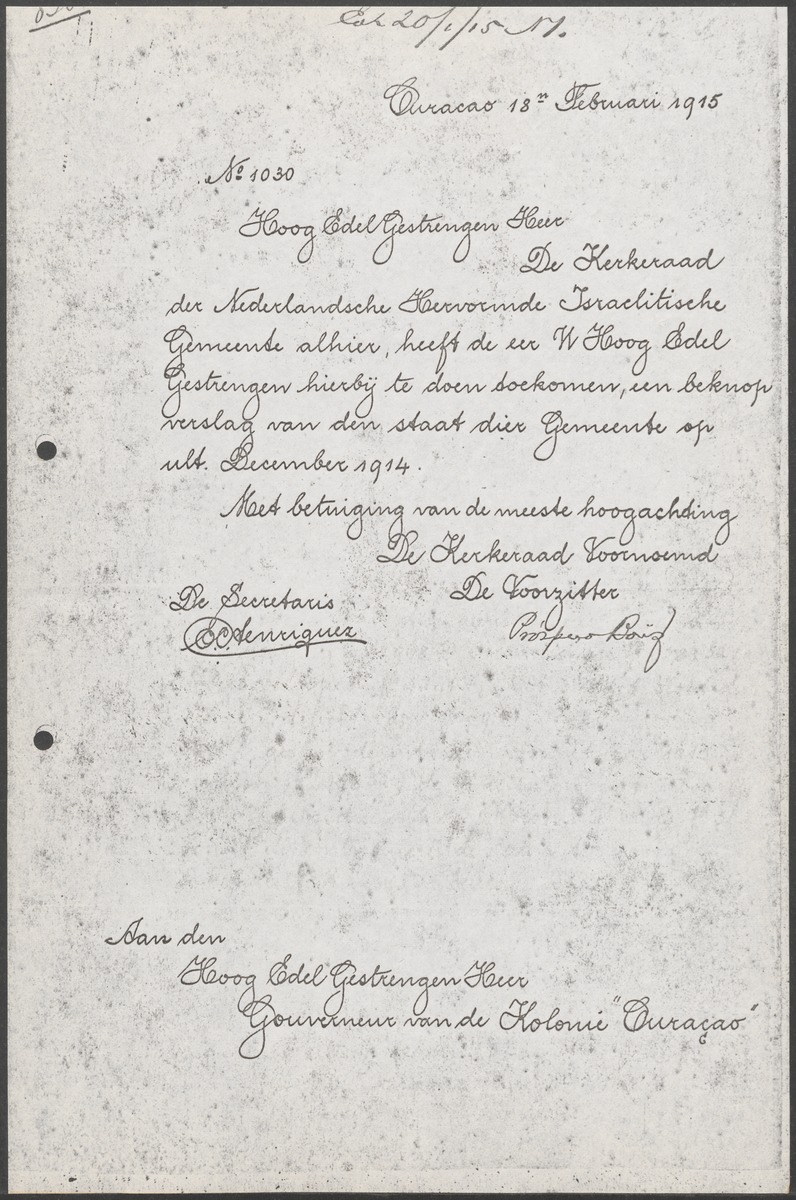 20/1/15
Curacao 18n Februari 1915
No 1030
Hoog Edel Gestrengen Heer
De Kerkeraad
der Nederlandsche Hervormde Israelitische
Gemeente alhier, heeft de eer W Hoog Edel
Gestrengen hierbij te doen toekomen, een beknop
verslag van den staat dier Gemeente op
ult. December 1914.
Met betuiging van de meeste hoogachting
De Kerkeraad Voornoemd
De Secretaris De Voorzitter
Henriquez Prospero Baiz
Aan den
Hoog Edel Gestrengen Heer
Gouverneur van de Kolonie "Curaçao"